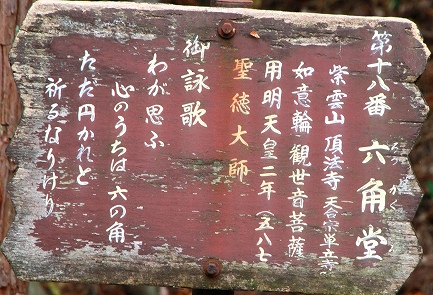 第十八番 六角堂
ろっかくどう
紫雲山 頂法寺 天台宗単立寺
如意輪観世音菩薩
用明天皇二年(五八七
聖徳大師
御詠歌
わが思ふ
心のうちは 六の角
ただ円かれと
祈るなりけり